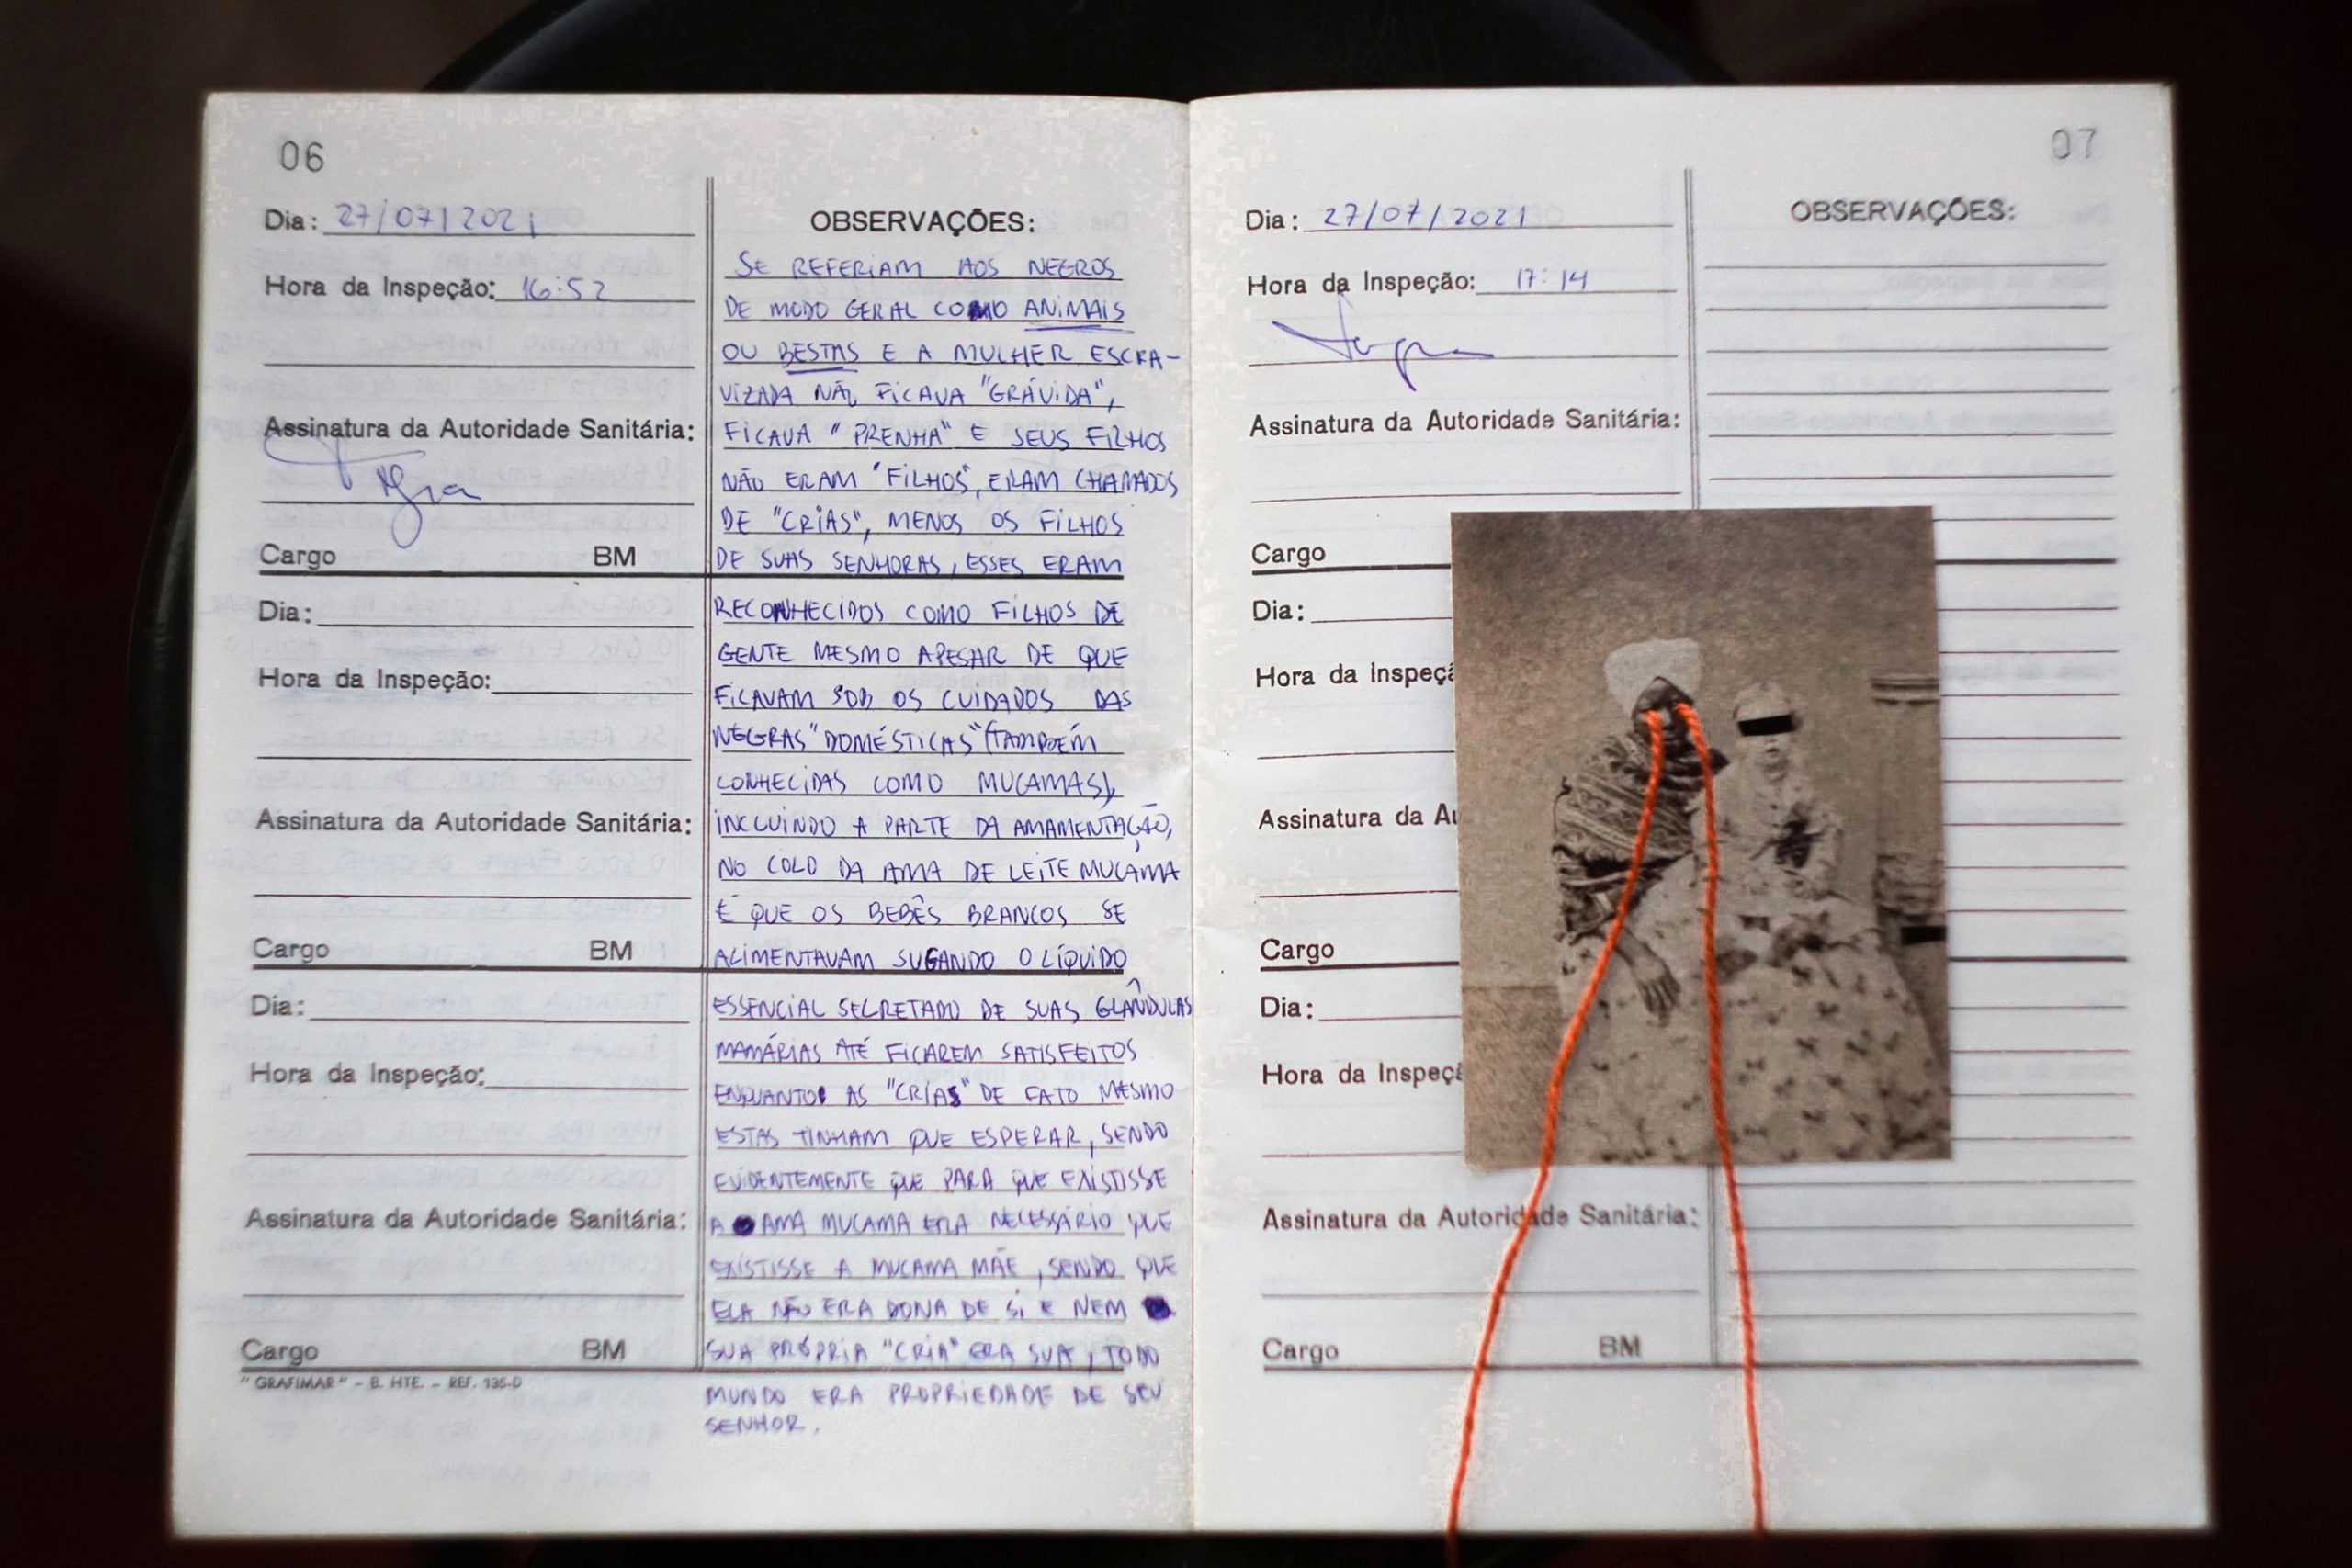 06
Dia: 27/07/2021
Hora da Inspeção: 16:52
Assinatura da Autoridade Sanitária:
Cargo BM
Dia:
Hora da Inspeção:
Assinatura da Autoridade Sanitária:
Cargo BM
Dia:
Hora da Inspeção:
Assinatura da Autoridade Sanitária:
Cargo BM
"GRAFIMAR" - B. HTE. - REF. 135-D
OBSERVAÇÕES:
SE REFERIAM AOS NEGROS
DE MODO GERAL COMO ANIMAIS
OU BESTAS E A MULHER ESCRA-
VIZADA NÃO FICAVA "GRÁVIDA",
FICAVA "PRENHA" E SEUS FILHOS
NÃO ERAM "FILHOS", ERAM CHAMADOS
DE "CRIAS", MENOS OS FILHOS
DE SUAS SENHORAS, ESSES ERAM
RECONHECIDOS COMO FILHOS DE
GENTE MESMO APESAR DE QUE
FICAVAM SOB OS CUIDADOS DAS
NEGRAS "DOMÉSTICAS" (TAMBÉM
CONHECIDAS COMO MUCAMAS),
INCLUINDO A PARTE DA AMAMENTAÇÃO,
NO COLO DA AMA DE LEITE MUCAMA
É QUE OS BEBÊS BRANCOS SE
ALIMENTAVAM SUGANDO O LÍQUIDO
ESSENCIAL SECRETADO DE SUAS GLÂNDULAS
MAMÁRIAS ATÉ FICAREM SATISFEITOS
ENQUANTO AS "CRIAS" DE FATO MESMO
ESTAS TINHAM QUE ESPERAR, SENDO
EVIDENTEMENTE QUE PARA QUE EXISTISSE
A AMA MUCAMA ERA NECESSÁRIO QUE
EXISTISSE A MUCAMA MÃE, SENDO QUE
ELA NÃO ERA DONA DE SI E NEM
SUA PRÓPRIA "CRIA" ERA SUA, TODO
MUNDO ERA PROPRIEDADE DE SEU
SENHOR.
07
Dia: 27/07/2021
Hora da Inspeção: 17:14
Assinatura da Autoridade Sanitária:
Cargo
Dia:
Hora da Inspeçã
Assinatura da Au
Cargo
Dia:
Hora da Inspeçã
Assinatura da Autoridade Sanitária:
Cargo BM
OBSERVAÇÕES: